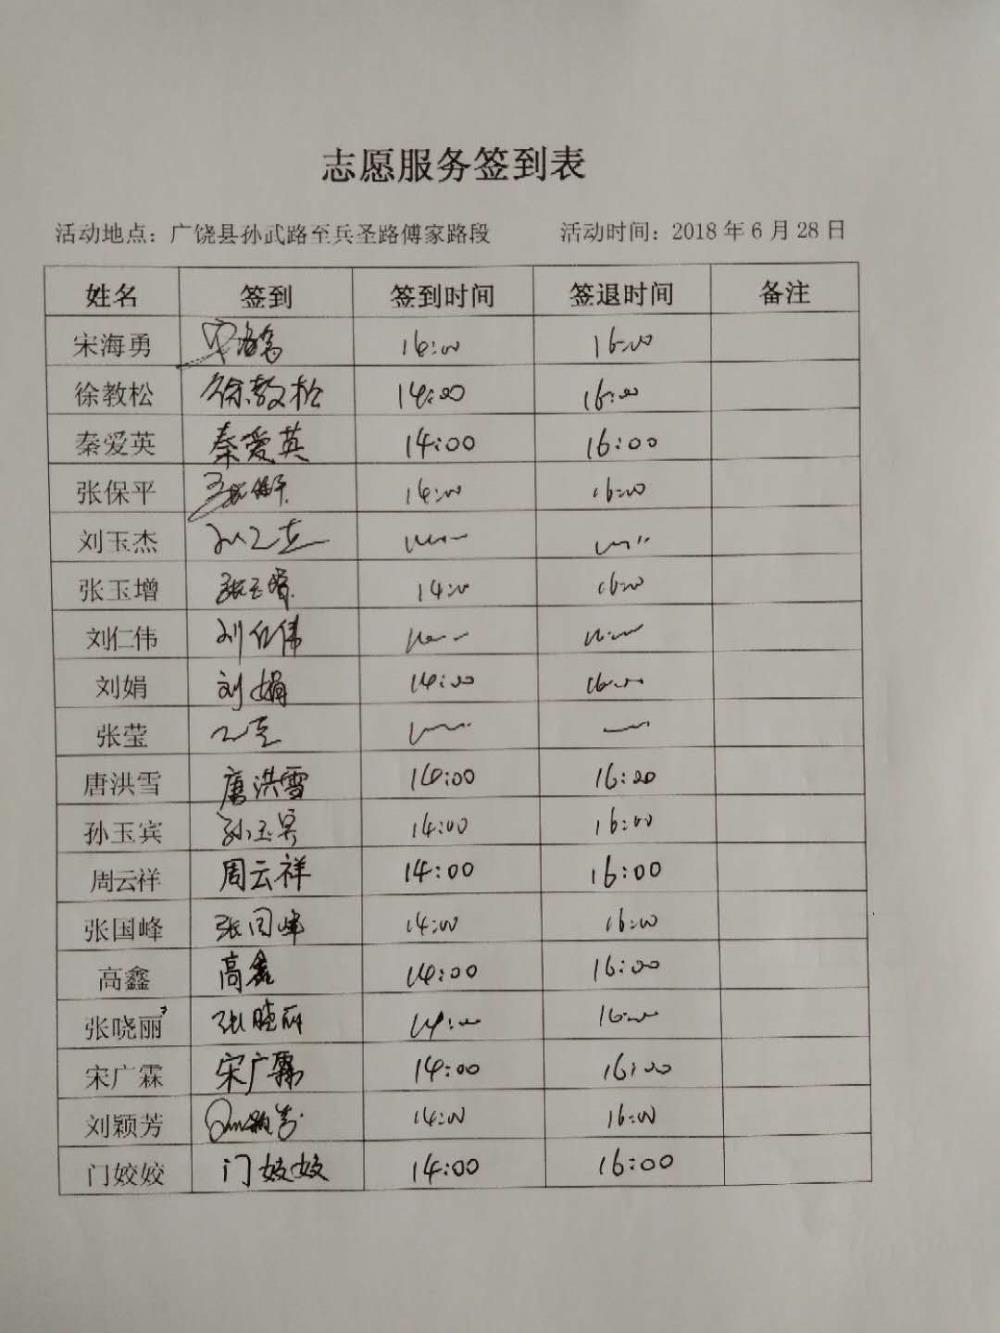 志愿服务签到表
活动地点：广饶县孙武路至兵圣路傅家路段 活动时间：2018 年 6 月 28 日
姓名 签到 签到时间 签退时间 备注
宋海勇 16:00
徐教松 徐教松 14:00 16:00
秦爱英 秦爱英 14:00 16:00
张保平 张保平 14:00 16:00
刘玉杰
张玉增 张玉增 14:00 16:00
刘仁伟 刘仁伟
刘娟 刘娟 14:00 16:00
张莹
唐洪雪 唐洪雪 14:00 16:00
孙玉宾 孙玉宾 14:00 16:00
周云祥 周云祥 14:00 16:00
张国峰 张国峰 14:00 16:00
高鑫 高鑫 14:00 16:00
张晓丽 张晓丽 14:00 16:00
宋广霖 宋广霖 14:00 16:00
刘颖芳 14:00 16:00
门姣姣 门姣姣 14:00 16:00